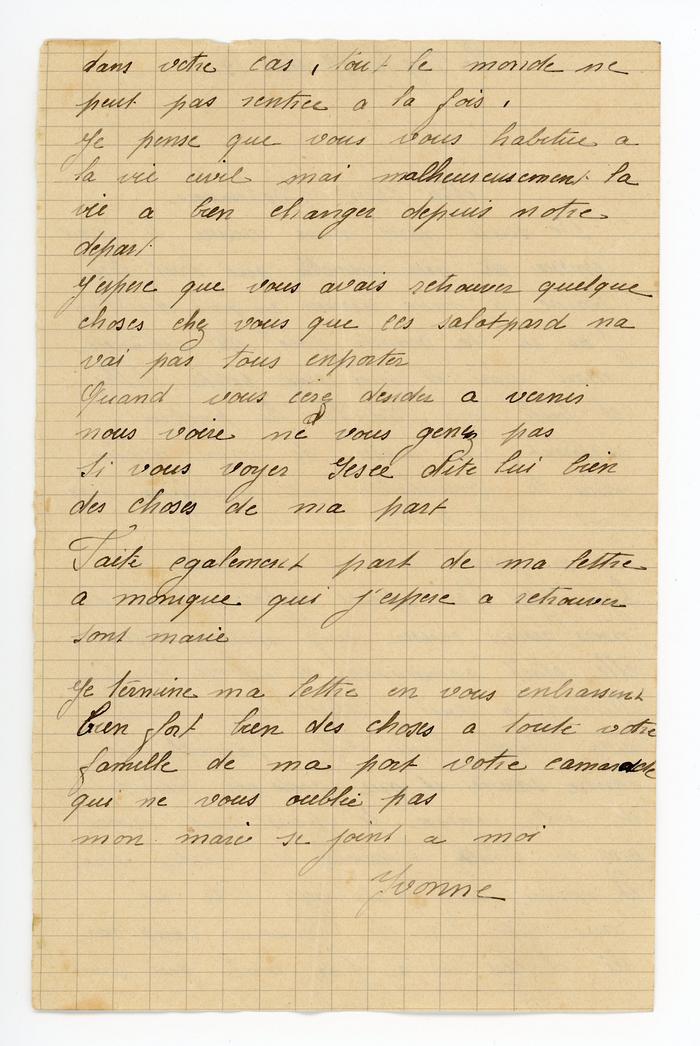 dans votre cas, tout le monde ne
peut pas rentree a la fois.
Je pense que vous vous habitue a
la vie civil mai malheureusement la
vie a bien changer depuis notre
depart.
J'espere que vous avais retrouver quelque
choses chez vous que ces salotpard na
vai pas tous enporter
Quand vous a venir
nous voire ne vous genez pas
Si vous voyer dite lui bien
des choses de ma part
Faite egalement part de ma lettre
a monique qui j'espere a retrouver
sont marie
Je termine ma lettre en vous enbrassent
bien fort bien des choses a toute votre
famille de ma part votre camarade
qui ne vous oublie pas
mon marie se joint a moi
Yvonne